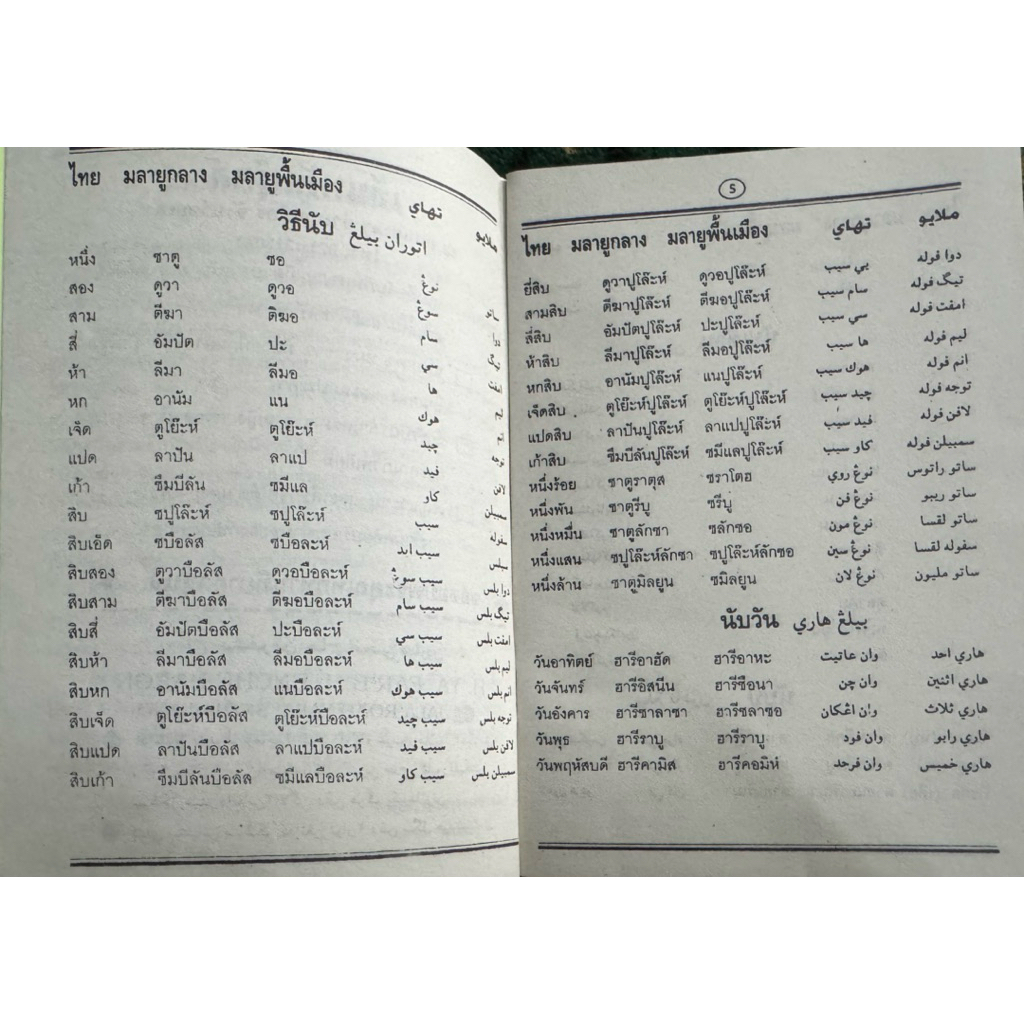 ไทย มลายูกลาง มลายูพื้นเมือง تهاي ملايو
วิธีนับ اتوران بيلڠ
หนึ่ง ซาตู ซอ نوڠ ساتو
สอง ดูวา ดูวอ سوڠ دوا
สาม ตีฆา ติฆอ سام تيݢ
สี่ อัมปัต ปะ سي امفت
ห้า ลีมา ลีมอ ها ليم
หก อานัม แน هوك انم
เจ็ด ตูโย๊ะห์ ตูโย๊ะห์ چيد توجه
แปด ลาปัน ลาแป فيد لافن
เก้า ซืมบีลัน ซมีแล كاو سمبيلن
สิบ ซปูโล๊ะห์ ซปูโล๊ะห์ سيب سفوله
สิบเอ็ด ซบือลัส ซบือละห์ سيب ايد سبلس
สิบสอง ดูวาบือลัส ดูวอบือละห์ سيب سوڠ دوا بلس
สิบสาม ตีฆาบือลัส ตีฆอบือละห์ سيب سام تيݢ بلس
สิบสี่ อัมปัตบือลัส ปะบือละห์ سيب سي امفت بلس
สิบห้า ลีมาบือลัส ลีมอบือละห์ سيب ها ليم بلس
สิบหก อานัมบือลัส แนบือละห์ سيب هوك انم بلس
สิบเจ็ด ตูโย๊ะห์บือลัส ตูโย๊ะห์บือละห์ سيب چيد توجه بلس
สิบแปด ลาปันบือลัส ลาแปบือละห์ سيب فيد لافن بلس
สิบเก้า ซืมบีลันบือลัส ซมีแลบือละห์ سيب كاو سمبيلن بلس
ไทย มลายูกลาง มลายูพื้นเมือง تهاي ملايو
ยี่สิบ ดูวาปูโล๊ะห์ ดูวอปูโล๊ะห์ يي سيب دوا فوله
สามสิบ ตีฆาปูโล๊ะห์ ตีฆอปูโล๊ะห์ سام سيب تيݢ فوله
สี่สิบ อัมปัตปูโล๊ะห์ ปะปูโล๊ะห์ سي سيب امفت فوله
ห้าสิบ ลีมาปูโล๊ะห์ ลีมอปูโล๊ะห์ ها سيب ليم فوله
หกสิบ อานัมปูโล๊ะห์ แนปูโล๊ะห์ هوك سيب انم فوله
เจ็ดสิบ ตูโย๊ะห์ปูโล๊ะห์ ตูโย๊ะห์ปูโล๊ะห์ چيد سيب توجه فوله
แปดสิบ ลาปันปูโล๊ะห์ ลาแปปูโล๊ะห์ فيد سيب لافن فوله
เก้าสิบ ซืมบีลันปูโล๊ะห์ ซมีแลปูโล๊ะห์ كاو سيب سمبيلن فوله
หนึ่งร้อย ซาตูราตุส ซราโตฮ نوڠ روي ساتو راتوس
หนึ่งพัน ซาตูรีบู ซรีบู نوڠ فن ساتو ريبو
หนึ่งหมื่น ซาตูลักซา ซลักซอ نوڠ مون ساتو لقسا
หนึ่งแสน ซปูโล๊ะห์ลักซา ซปูโล๊ะห์ลักซอ نوڠ سين سفوله لقسا
หนึ่งล้าน ซาตูมิลยูน ซมิลยูน نوڠ لان ساتو مليون
นับวัน بيلڠ هاري
วันอาทิตย์ ฮารีอาฮัด ฮารีอาหะ وان عاتيت هاري احد
วันจันทร์ ฮารีอิสนีน ฮารีซือนา وان چن هاري اثنين
วันอังคาร ฮารีซาลาซา ฮารีซลาซอ وان اڠكان هاري ثلاث
วันพุธ ฮารีราบู ฮารีราบู وان فود هاري رابو
วันพฤหัสบดี ฮารีคามิส ฮารีคอมิห์ وان فرحد هاري خميس